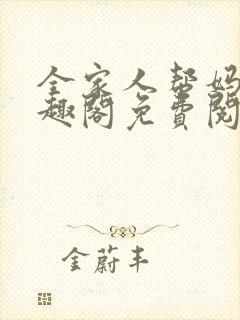 全家人帮妈
趣阁免费阅
金蔚丰